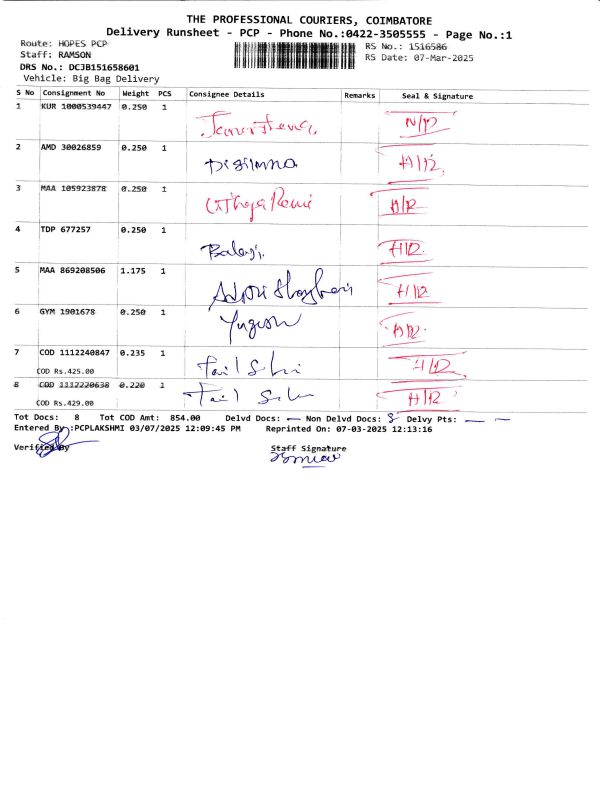 THE PROFESSIONAL COURIERS, COIMBATORE
Delivery Runsheet - PCP - Phone No.:0422-3505555 - Page No.:1
Route: HOPES PCP
RS No.: 1516586
Staff: RAMSON
RS Date: 07-Mar-2025
DRS No.: DCJB151658601
Vehicle: Big Bag Delivery
S No Consignment No Weight PCS Consignee Details Remarks Seal & Signature
1 KUR 1000539447 0.250 1
2 AMD 30026859 0.250 1 H/12
3 MAA 105923878 0.250 1 H/12
4 TDP 677257 0.250 1 Balaji H/12
5 MAA 869208506 1.175 1 H/12
6 GYM 1901678 0.250 1 H/12
7 COD 1112240847 0.235 1 H/12
COD Rs.425.00
8 COD 1112220638 0.220 1 H/12
COD Rs.429.00
Tot Docs: 8 Tot COD Amt: 854.00 Delvd Docs: — Non Delvd Docs: 8 Delvy Pts: — —
Entered By :PCPLAKSHMI 03/07/2025 12:09:45 PM Reprinted On: 07-03-2025 12:13:16
Verified By
Staff Signature